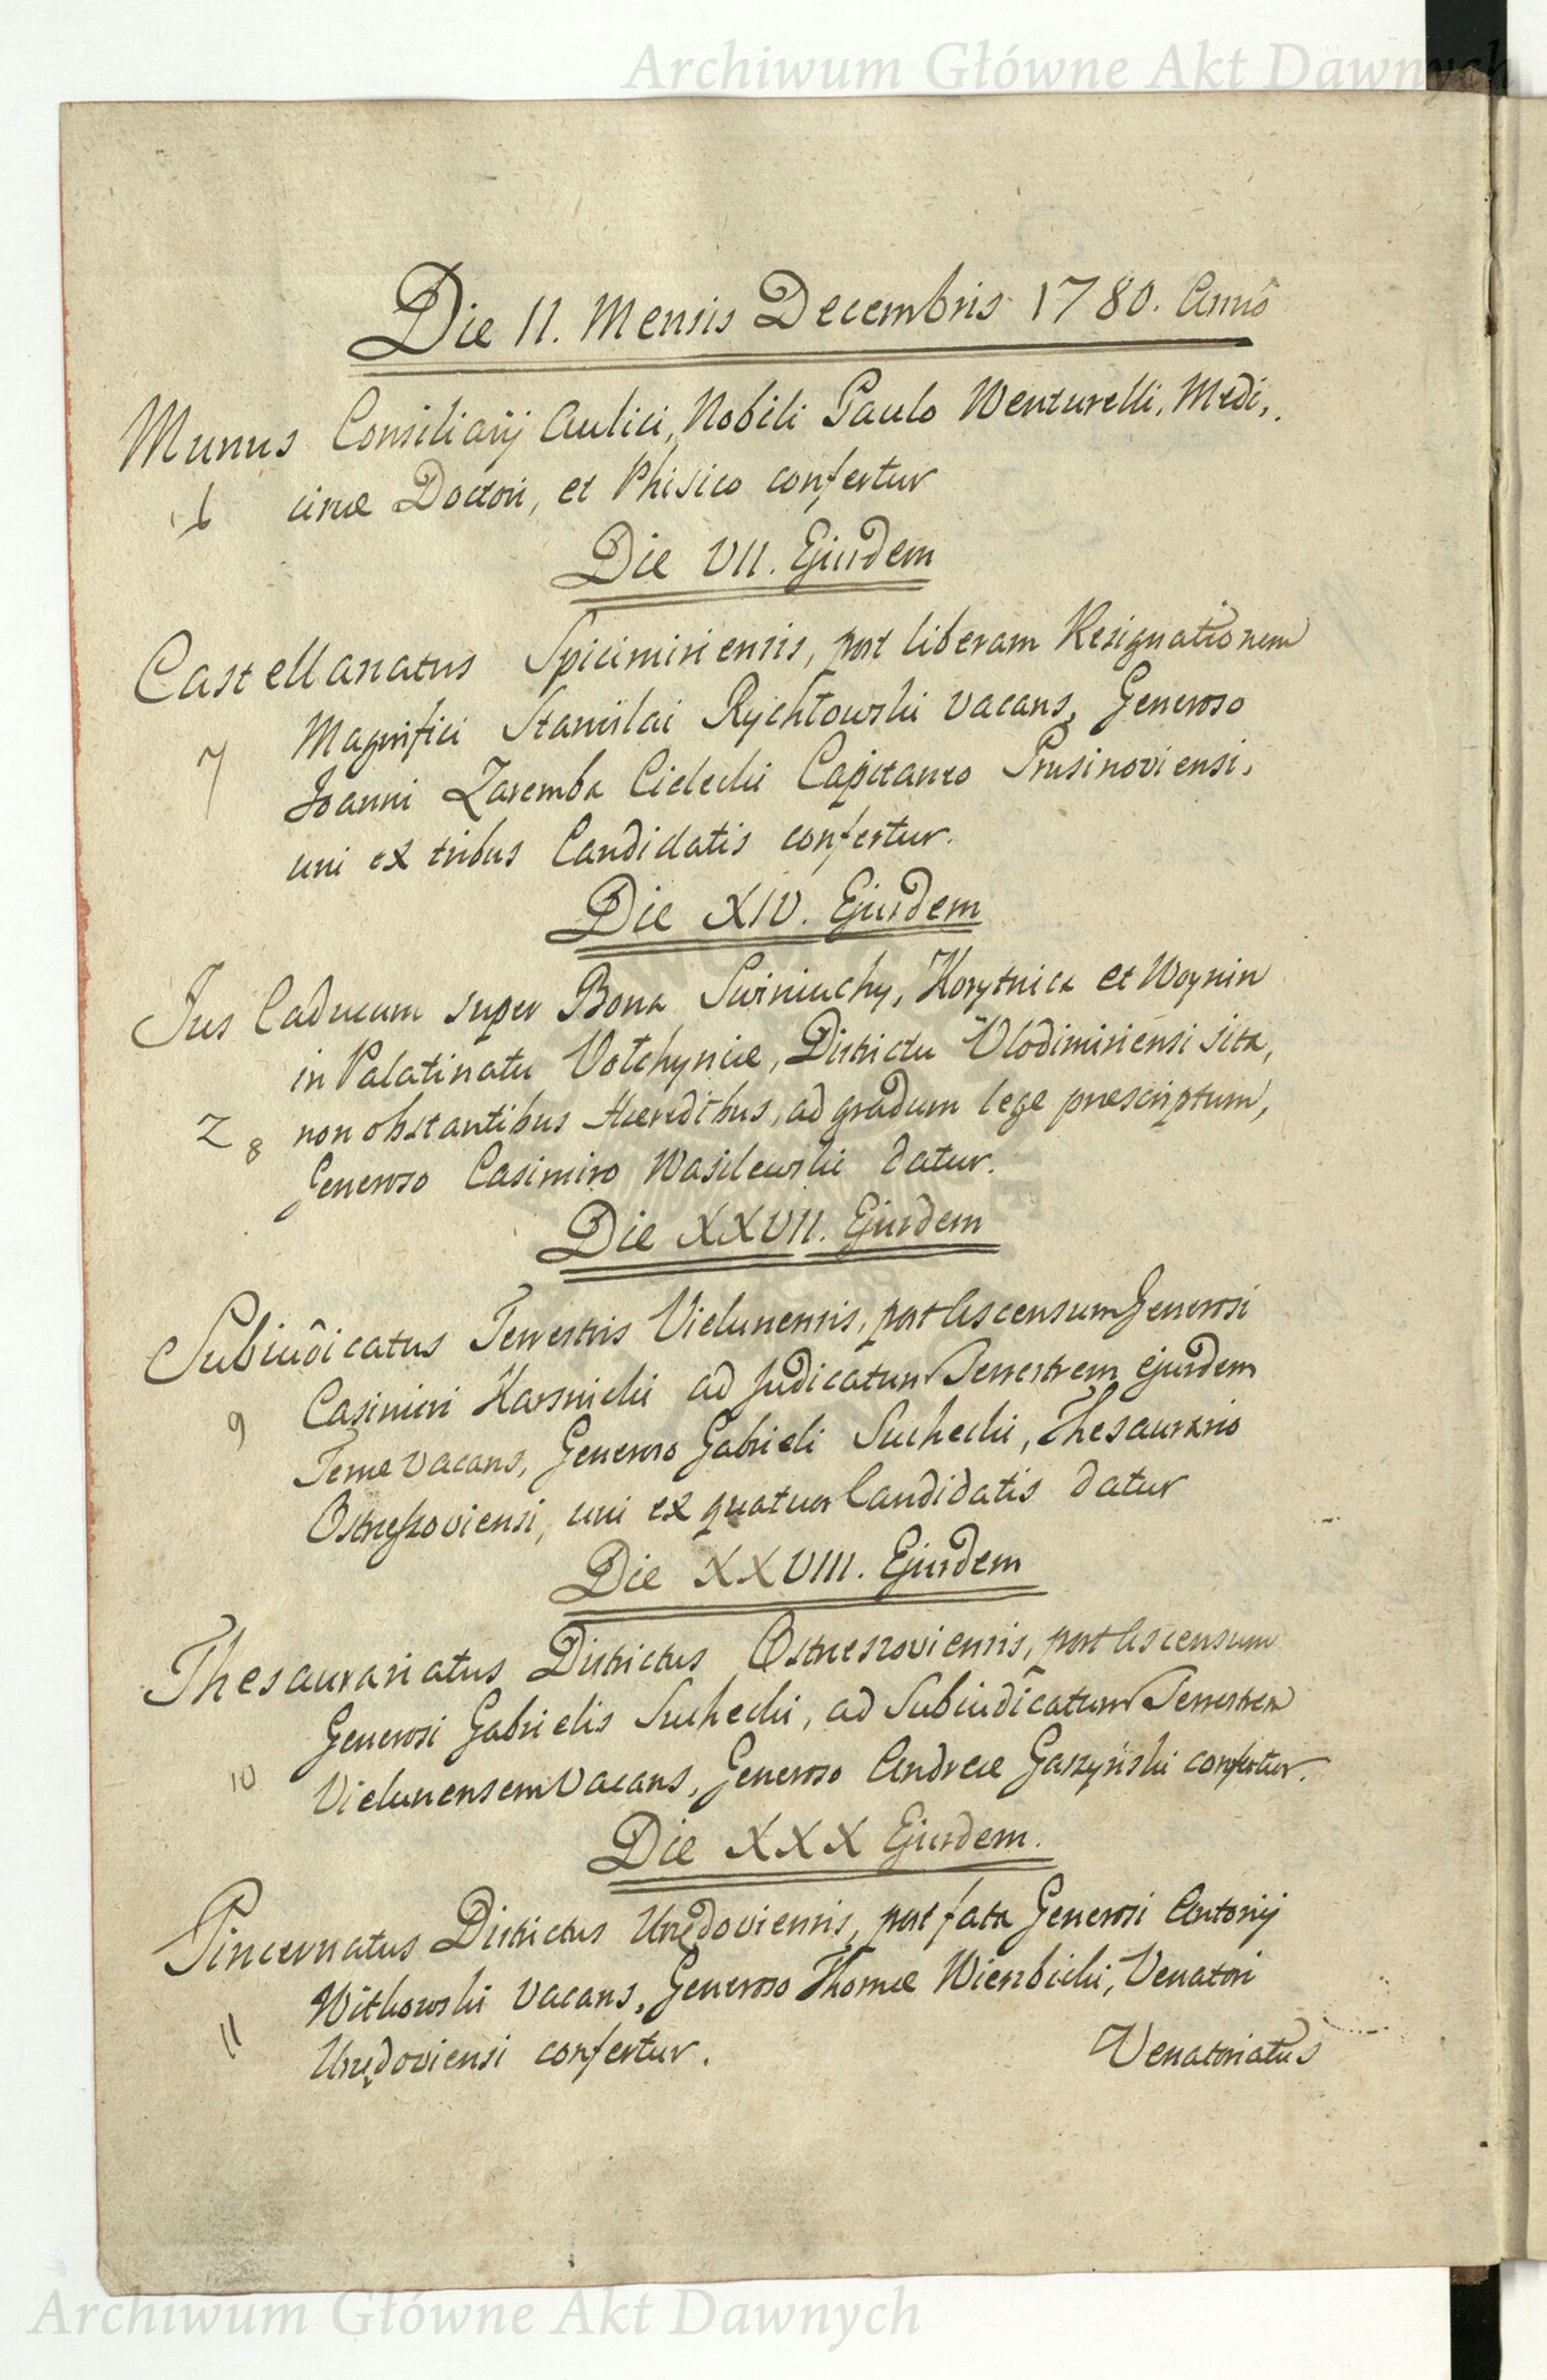 Archiwum Główne Akt Dawnych
Die II. Mensis Decembris 1780. Annô
Munus Consiliarij Aulici, Nobili Paulo Wenturelli, Medi,,
6 cinæ Doctori, et Phisico confertur
Die VII. Ejusdem
Castellanatus Spicimiriensis, post liberam Resignationem
Magnifici Stanislai Rychłowski vacans, Generoso
7 Joanni Zaremba Cielecki Capitaneo Prusinoviensi,
uni ex tribus Candidatis confertur.
Die XIV. Ejusdem
Jus Caducum super Bona Swiniuchy, Korytnica et Woynin
in Palatinatu Vołhyniæ, Districtu Vlodimiriensi sita,
Z 8 non obstantibus Hæredibus, ad gradum lege præscriptum,
Generoso Casimiro Wasilewski datur.
Die XXVII. Ejusdem
Subiudicatus Terrestris Vielunensis, post Ascensum Generosi
Casimiri Karsnicki ad Judicatum Terrestrem ejusdem
9 Terræ vacans, Generoso Gabrieli Suchecki, Thesaurario
Ostrzeszoviensi, uni ex quatuor Candidatis datur
Die XXVIII. Ejusdem
Thesaurariatus Districtus Ostrzeszoviensis, post Ascensum
Generosi Gabrielis Suchecki, ad Subiudicatum Terrestrem
10 Vielunensem vacans, Generoso Andreæ Gaszyński confertur.
Die XXX Ejusdem.
Pincernatus Districtus Urzędoviensis, post fata Generosi Antonij
Witkowski vacans, Generoso Thomæ Wierzbicki, Venatori
11 Urzędoviensi confertur.
Venatoriatus
Archiwum Główne Akt Dawnych